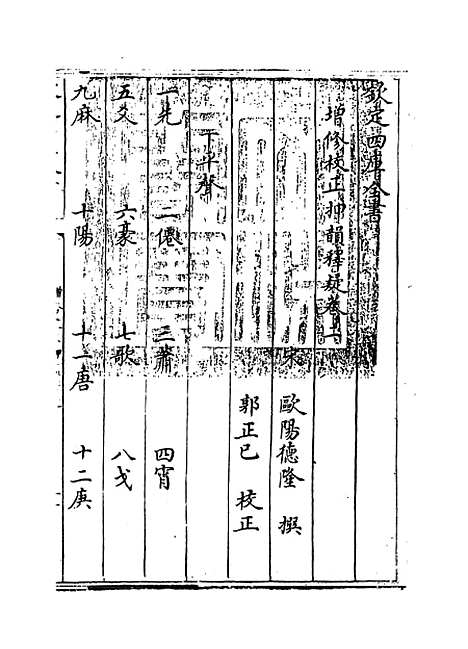 欽定四庫全書
增修校正押韻釋疑卷二
宋 歐陽德隆 撰
郭正已 校正
下平聲
一先 二僊 三蕭 四宵
五爻 六豪 七歌 八戈
九麻 十陽 十一唐 十二庚